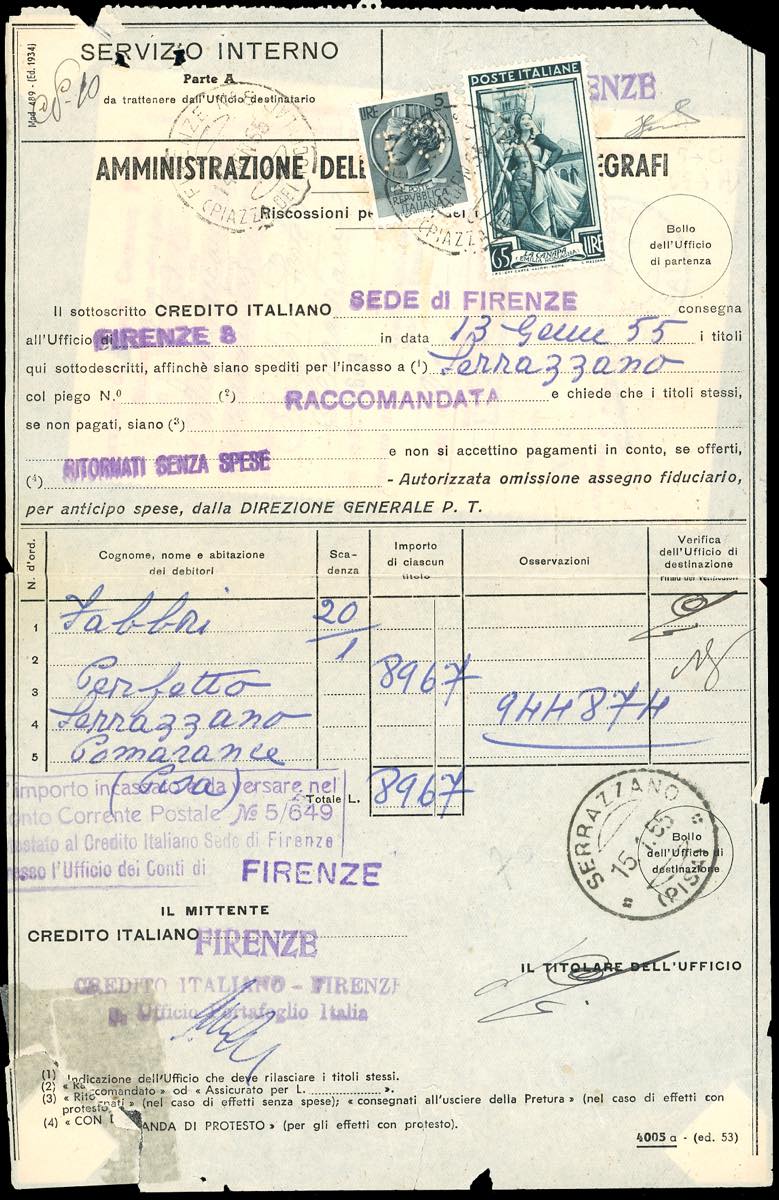 Mod. 489 - (Ed. 1934)
SERVIZIO INTERNO
Parte A
da trattenere dall'Ufficio destinatario
FIRENZE
(PIAZZA DEI
LIRE 5
POSTE
REPVBBLICA
ITALIANA
POSTE ITALIANE
LA CANAPA
EMILIA ROMAGNA
65 LIRE
(PIAZZA
ENZE
AMMINISTRAZIONE DEL EGRAFI
Riscossioni pe
Bollo
dell'Ufficio
di partenza
Il sottoscritto CREDITO ITALIANO SEDE di FIRENZE consegna
all'Ufficio di FIRENZE 8 in data 13 Genn 55 i titoli
qui sottodescritti, affinchè siano spediti per l'incasso a (1) Serrazzano
col piego N.º (2) RACCOMANDATA e chiede che i titoli stessi,
se non pagati, siano (3)
(4) RITORNATI SENZA SPESE e non si accettino pagamenti in conto, se offerti,
- Autorizzata omissione assegno fiduciario,
per anticipo spese, dalla DIREZIONE GENERALE P. T.
N. d'ord. Cognome, nome e abitazione dei debitori Sca-denza Importo di ciascun titolo Osservazioni Verifica dell'Ufficio di destinazione
1 Fabbri 20/1
2
3 Perfetto 8967
4 Serrazzano 944874
5 Pomarance
(Pisa)
Totale L. 8967
importo incassato da versare nel
onto Corrente Postale № 5/649
estato al Credito Italiano Sede di Firenze
resso l'Ufficio dei Conti di FIRENZE
SERRAZZANO
15.1.55
(PISA)
Bollo
dell'Ufficio di
destinazione
IL MITTENTE
CREDITO ITALIANO FIRENZE
CREDITO ITALIANO - FIRENZE
Ufficio Portafoglio Italia
IL TITOLARE DELL'UFFICIO
(1) Indicazione dell'Ufficio che deve rilasciare i titoli stessi.
(2) « Raccomandato » od « Assicurato per L. ».
(3) « Rito gnati » (nel caso di effetti senza spese); « consegnati all'usciere della Pretura » (nel caso di effetti con
protesto
(4) « CON D ANDA DI PROTESTO » (per gli effetti con protesto).
4005 a - (ed. 53)